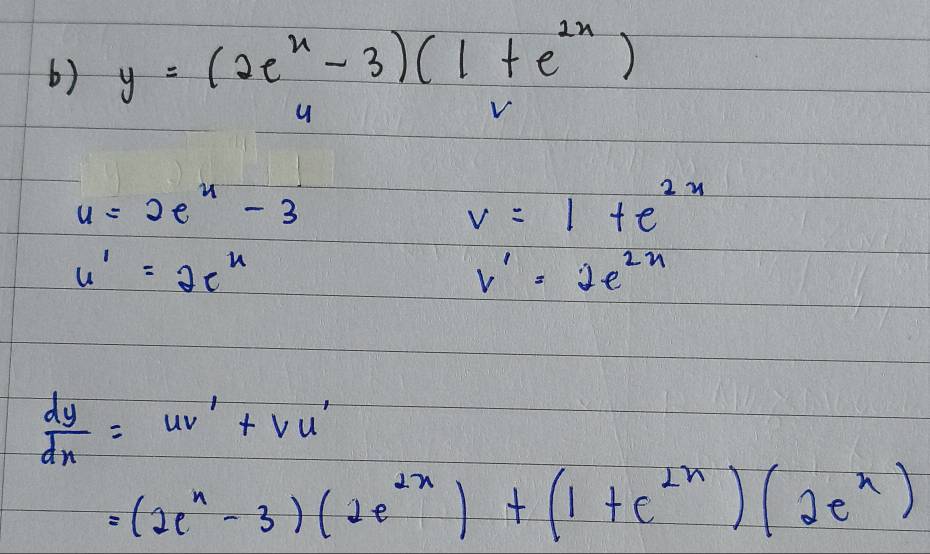 b) y = (2eˣ - 3)(1 + e²ˣ)
u v
u = 2eˣ - 3 v = 1 + e²ˣ
u' = 2eˣ v' = 2e²ˣ
dy/dx = uv' + vu'
= (2eˣ - 3)(2e²ˣ) + (1 + e²ˣ)(2eˣ)